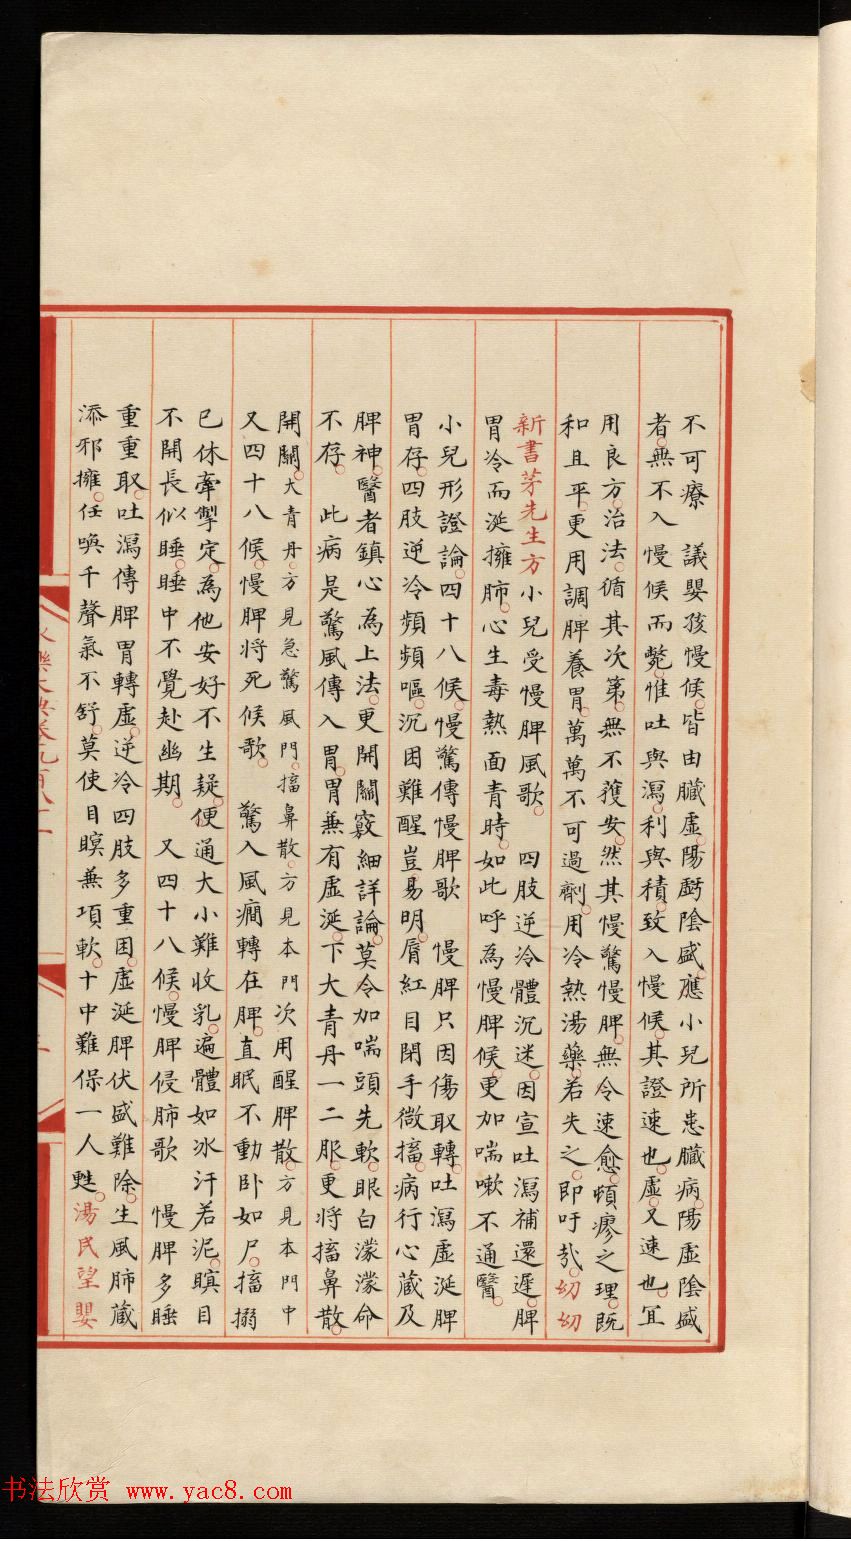 不可療　議嬰孩慢候。皆由臟虛。陽虧陰盛。應小兒所患臟病。陽虛陰盛
者。無不入慢候而斃。惟吐與瀉。利與積。致入慢候。其證速也。虛。又速也。宜
用良方治法。循其次第。無不獲安。然其慢驚慢脾。無令速愈。頓瘳之理。既
和且平。更用調脾養胃。萬萬不可過劑。用冷熱湯藥。若失之。即吁哉。幼幼
新書茅先生方小兒受慢脾風歌。　四肢逆冷體沉迷。因宣吐瀉補還遲。脾
胃冷而涎擁肺。心生毒熱面青時。如此呼為慢脾候。更加喘嗽不通醫。
小兒形證論。四十八候。慢驚傳慢脾歌　慢脾只因傷取轉。吐瀉虛涎脾
胃存。四肢逆冷頻頻嘔。沉困難醒豈易明。脣紅目閉手微搐。病行心藏及
脾神。醫者鎮心為上法。更開關竅細詳論。莫令加喘頭先軟。眼白濛濛命
不存。　此病是驚風傳入胃。胃兼有虛涎。下大青丹一二服。更將搐鼻散。
開關。大青丹。方見急驚風門。搐鼻散。方見本門次用醒脾散。方見本門中
又四十八候。慢脾將死候歌。　驚入風癎轉在脾。直眠不動卧如尸。搐搦
已休牽掣定。為他安好不生疑。便通大小難收乳。遍體如冰汗若泥。瞑目
不開長似睡。睡中不覺赴幽期。　又四十八候。慢脾侵肺歌　慢脾多睡
重重取。吐瀉傳脾胃轉虛。逆冷四肢多重困。虛涎脾伏盛難除。生風肺藏
添邪擁。任喚千聲氣不舒。莫使目瞑兼項軟。十中難保一人甦。湯民望嬰
永樂大典卷九百八十一
書法欣赏 www.yac8.com